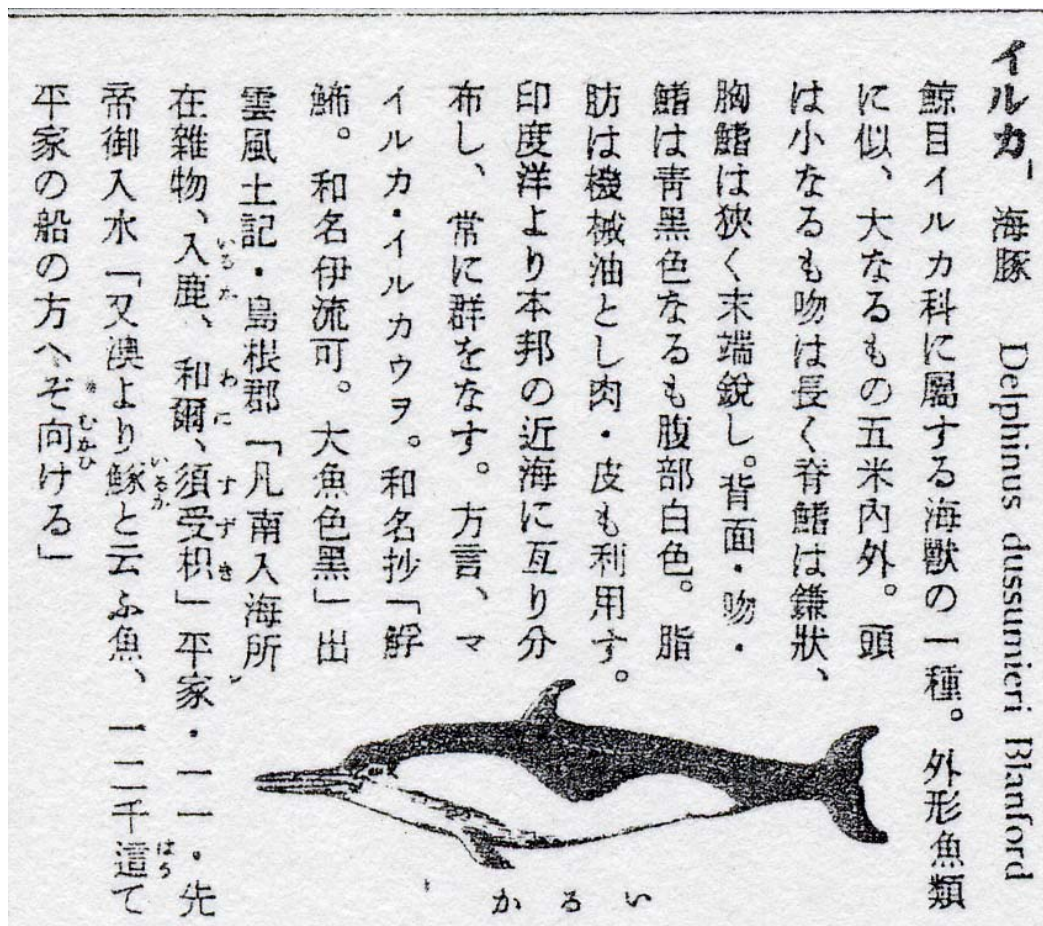 イルカ 海豚 Delphinus dussumieri Blanford
鯨目イルカ科に屬する海獸の一種。外形魚類
に似、大なるもの五米內外。頭
は小なるも吻は長く脊鰭は鎌狀、
胸鰭は狹く末端銳し。背面・吻・
鰭は靑黑色なるも腹部白色。脂
肪は機械油とし肉・皮も利用す。
印度洋より本邦の近海に亙り分
布し、常に群をなす。方言、マ
イルカ・イルカウヲ。和名抄「䱐
䰽。和名伊流可。大魚色黑」出
雲風土記・島根郡「凡南入海所
在雜物、入鹿、和爾、須受枳」平家・一一・先
帝御入水「又澳より鯆と云ふ魚、一二千這て
平家の船の方へぞ向ける」
いるか
わに
すずき
いるか
はう
むかひ
いるか